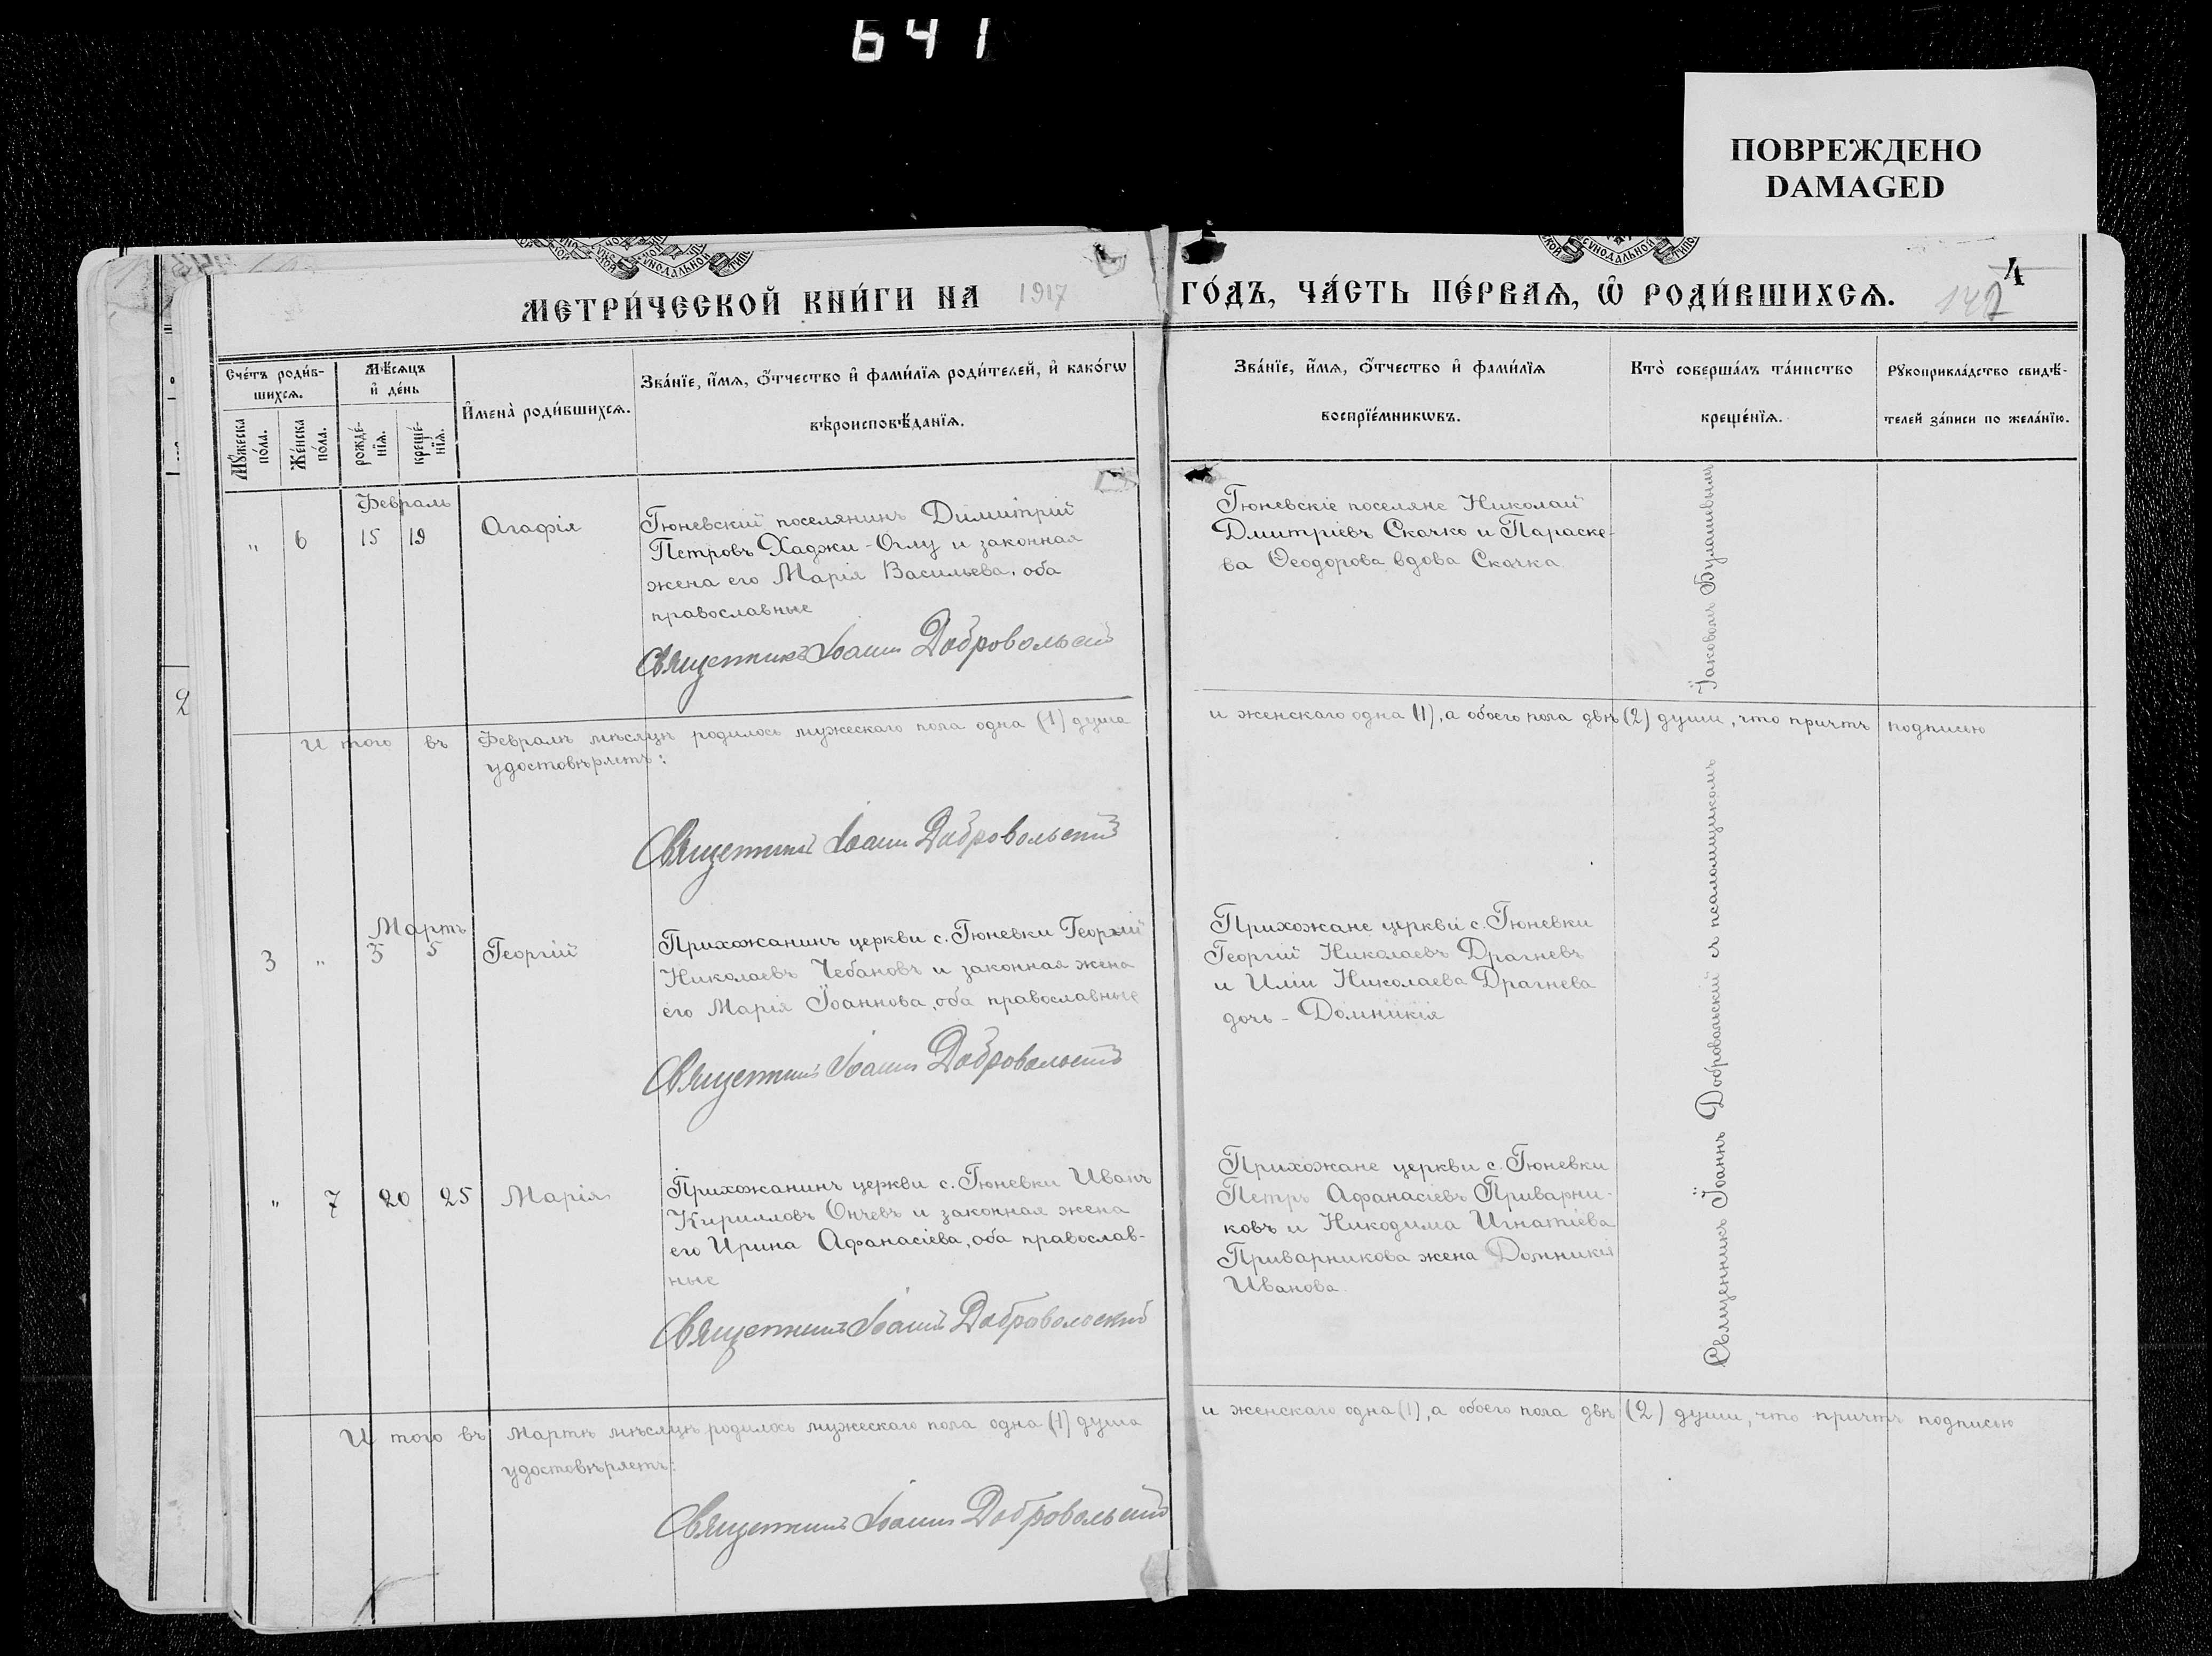 641
ПОВРЕЖДЕНО
DAMAGED
МЕТРИ́ЧЕСКОЙ КНИ́ГИ НА 1917 ГО́ДЪ, ЧА́СТЬ ПЕ́РВАѦ, Ѡ РОДИ́ВШИХСѦ.
4
142
Сче́тъ роди́в-
шихсѧ.
Мꙋ́жеска
по́ла.
Же́нска
по́ла.
Мѣ́сѧцъ
и҆ де́нь
рожде́-
нїѧ.
креще́-
нїѧ.
И҆мена̀ роди́вшихсѧ.
Зва́нїе, и҆́мѧ, ѻ҆́тчество и҆ фами́лїѧ роди́телей, и҆ како́гѡ
вѣроисповѣ́данїѧ.
Зва́нїе, и҆́мѧ, ѻ҆́тчество и҆ фами́лїѧ
воспрїе́мникѡвъ.
Кто̀ соверша́лъ та́инство
креще́нїѧ.
Рꙋкоприкла́дство свидѣ́-
телей за́писи по жела́нїю.
Февраль
" 6 15 19 Агафія
Гюневскій поселянинъ Димитрій
Петровъ Хаджи-Оглу и законная
жена его Марія Васильева, оба
православные
Священникъ Іоаннъ Добровольскій
Гюневскіе поселяне Николай
Дмитріевъ Скачко и Параске-
ва Ѳеодорова вдова Скачка
И того въ Февралѣ мѣсяцѣ родилось мужескаго пола одна (1) душа и женскаго одна (1), а обоего пола двѣ (2) души, что причтъ подписью
удостовѣряетъ:
Священникъ Іоаннъ Добровольскій
Мартъ
3 " 3 5 Георгій
Прихожанинъ церкви с. Гюневки Георгій
Николаевъ Чебановъ и законная жена
его Марія Іоаннова, оба православные
Священникъ Іоаннъ Добровольскій
Прихожане церкви с. Гюневки
Георгій Николаевъ Драгневъ
и Иліи Николаева Драгнева
дочь - Домникія
" 7 20 25 Марія
Прихожанинъ церкви с. Гюневки Иванъ
Кирилловъ Ончевъ и законная жена
его Ирина Афанасіева, оба православ-
ные
Священникъ Іоаннъ Добровольскій
Прихожане церкви с. Гюневки
Петръ Афанасіевъ Приварни-
ковъ и Никодима Игнатіева
Приварникова жена Домникія
Иванова.
Священникъ Іоаннъ Добровольскій съ псаломщикомъ Іаковомъ
И того въ Мартѣ мѣсяцѣ родилось мужескаго пола одна (1) душа и женскаго одна (1), а обоего пола двѣ (2) души, что причтъ подписью
удостовѣряетъ:
Священникъ Іоаннъ Добровольскій
2